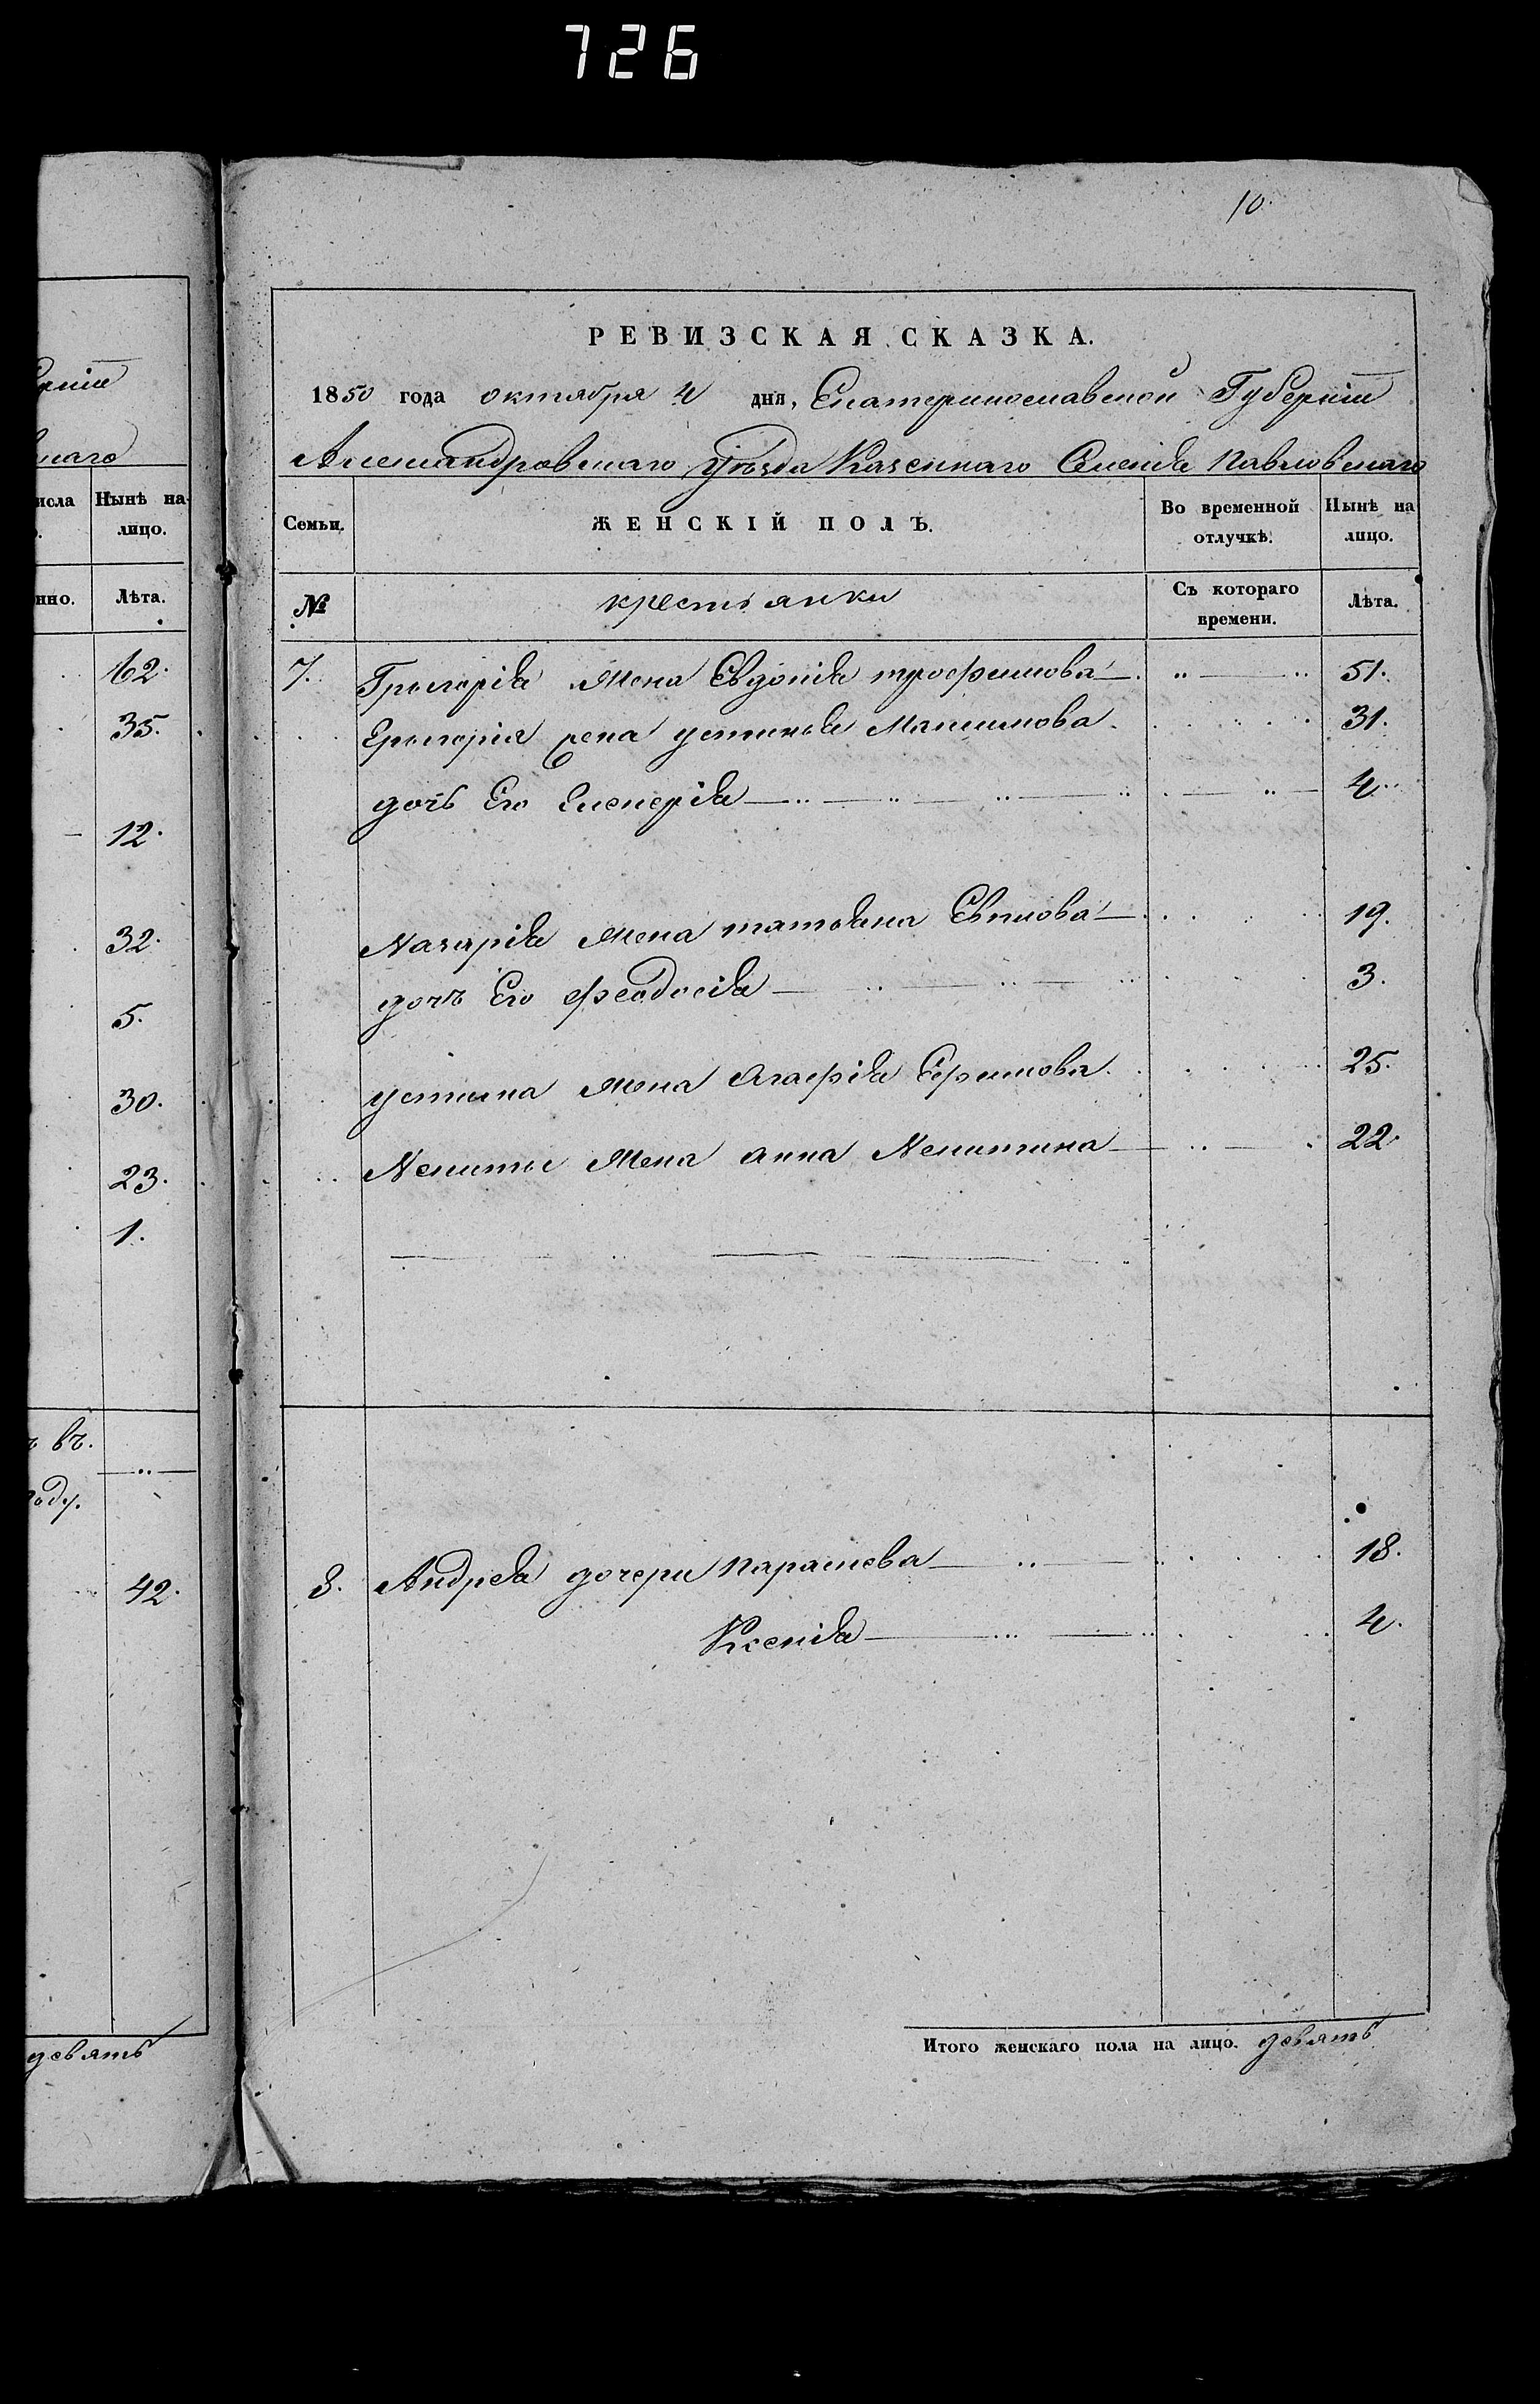 726
10.
РЕВИЗСКАЯ СКАЗКА.
1850 года октября 4 дня, Екатеринославской Губерніи
Александровскаго уѣзда Казеннаго Селенія Павловскаго
Семьи. ЖЕНСКІЙ ПОЛЪ. Во временной отлучкѣ. Нынѣ на лицо.
№ крестьянки Съ котораго времени. Лѣта.
7. Григорія жена Евдокія трофимова 51.
Григорія жена устинья Максимова 31.
дочь Его Гликерія 4
Назарія жена татьяна 19.
дочь Его Феодосія 3.
устина жена Агафія Ефимова 25.
Никиты жена анна Никитина 22.
8. Андрея дочери 18.
Ксенія 4.
Итого женскаго пола на лицо. девять
исла Нынѣ на лицо.
нно. Лѣта.
62.
35.
12.
32.
5.
30.
23.
1.
въ.
году.
42.
девять